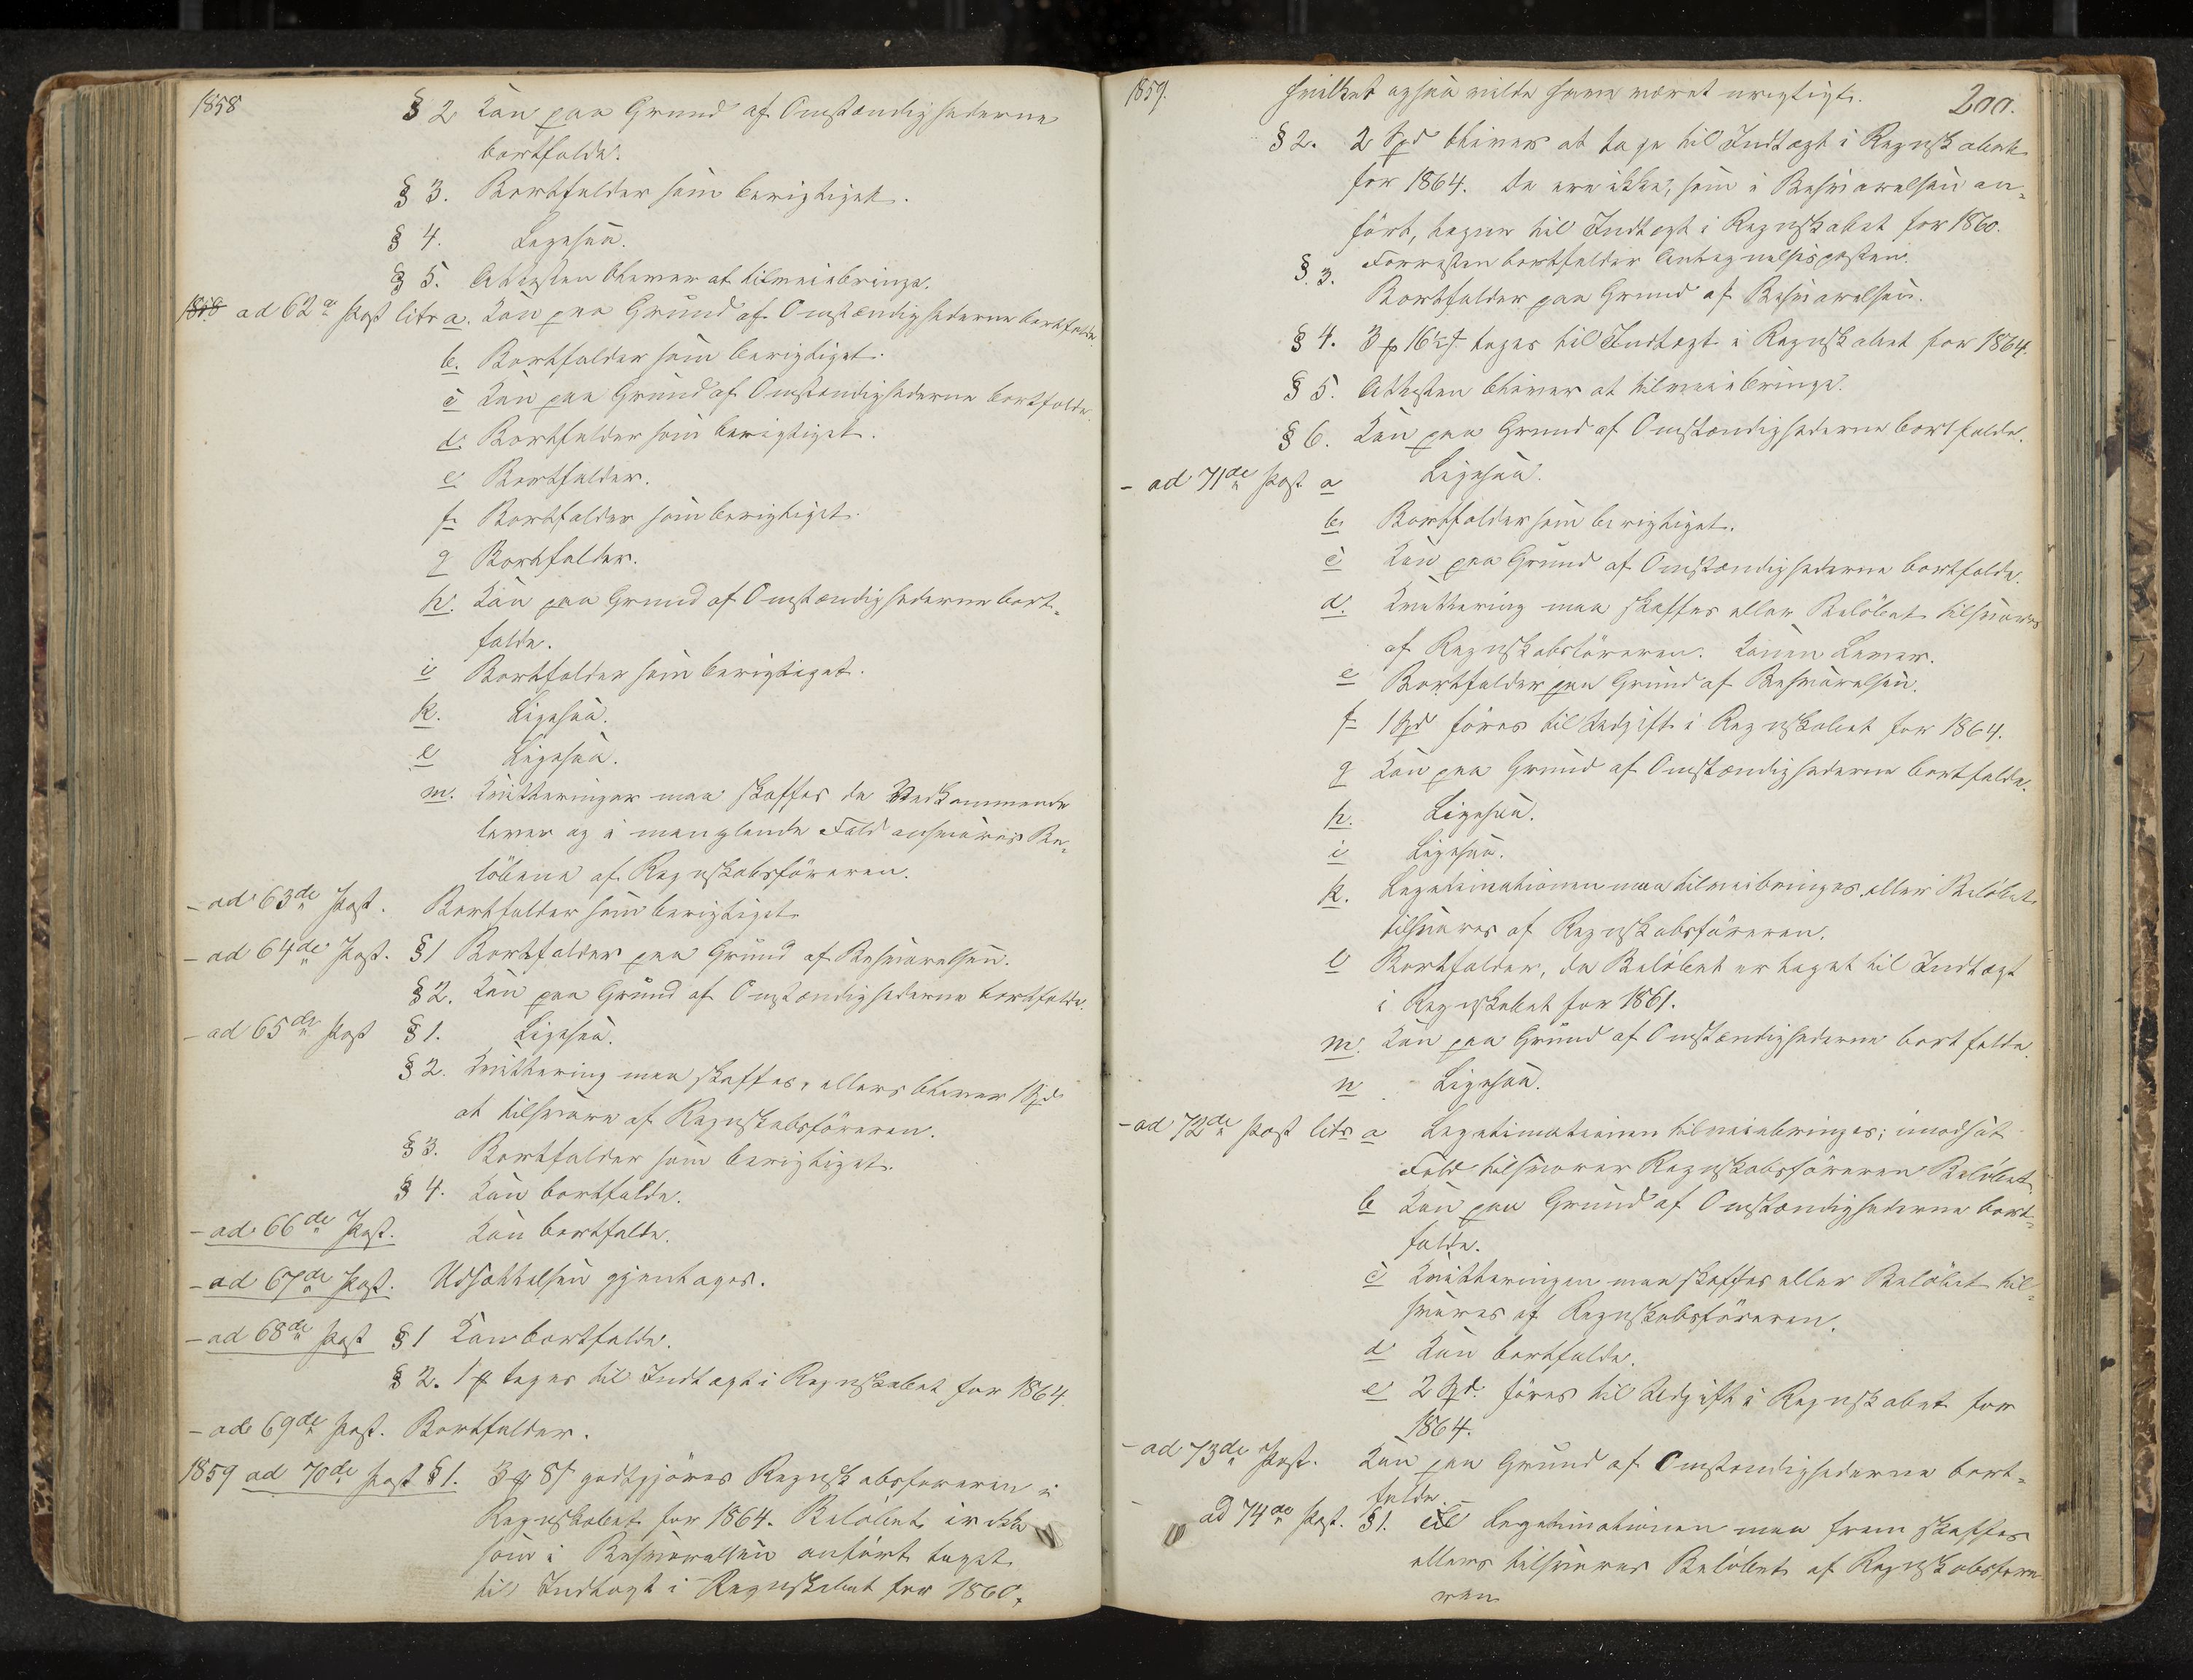 1858
§ 2 Kan paa Grund af Omstændighederne
bortfalde.
§ 3. Bortfalder som berigtiget.
§ 4. Ligesaa.
§ 5. Attesten bliver at tilveiebringe.
1858 ad 62de Post litr a. Kan paa Grund af Omstændighederne bortfalde
b. Bortfalder som berigtiget.
c Kan paa Grund af Omstændighederne bortfalde.
d. Bortfalder som berigtiget.
e Bortfalder.
f. Bortfalder som berigtiget.
g Bortfalder.
h. Kan paa Grund af Omstændighederne bort-
falde.
i Bortfalder som berigtiget.
k. Ligesaa.
l Ligesaa.
m. Kvitteringer maa skaffes da Vedkommende
lever og i manglende Fald ansvares Be-
löbene af Regnskabsföreren.
- ad 63de Post. Bortfalder som berigtiget
- ad 64de Post. § 1 Bortfalder paa Grund af Besvarelsen.
§ 2. Kan paa Grund af Omstændighederne bortfalde.
- ad 65de Post § 1. Ligesaa.
§ 2. Kvittering maa skaffes, ellers bliver 1 Spd
at tilsvare af Regnskabsföreren.
§ 3. Bortfalder som berigtiget.
§ 4. Kan bortfalde.
- ad 66de Post. Kan bortfalde.
- ad 67de Post. Udsættelsen gjentages.
- ad 68de Post § 1 Kan bortfalde.
§ 2. 1 tages til Indtægt i Regnskabet for 1864.
- ad 69de Post. Bortfalder.
1859 ad 70de Post § 1. 3 8 godtgjöres Regnskabsföreren i
Regnskabet for 1864. Belöbet er ikke
som i Besvarelsen anfört taget
til Indtægt i Regnskabet for 1860,
1859.
hvilket ogsaa vilde have været urigtigt.
200.
§ 2. 2 Spd bliver at tage til Indtægt i Regnskabet
for 1864. De ere ikke, som i Besvarelsen an-
fört, tagne til Indtægt i Regnskabet for 1860.
Forresten bortfalder Antegnelsesposten.
§. 3. Bortfalder paa Grund af Besvarelsen.
§ 4. 3 16 tages til Indtægt i Regnskabet for 1864.
§ 5. Attesten bliver at tilveiebringe.
§ 6. Kan paa Grund af Omstændighederne bortfalde.
- ad 71de Post a Ligesaa.
b. Bortfalder som berigtiget.
c Kan paa Grund af Omstændighederne bortfalde.
d. Kvittering maa skaffes eller Belöbet tilsvares
af Regnskabsföreren. Konen Lever.
e Bortfalder paa Grund af Besvarelsen.
f 1 Spd föres til Udgift i Regnskabet for 1864.
g Kan paa Grund af Omstændighederne bortfalde.
h. Ligesaa.
i Ligesaa.
k. Legitimationen maa tilveibringes eller Belöbet
tilsvares af Regnskabsföreren.
l Bortfalder, da Belöbet er taget til Indtægt
i Regnskabet for 1861.
m. Kan paa Grund af Omstændighederne bortfalde.
n Ligesaa.
- ad 72de Post litr a Legitimationen tilveiebringes; imodsat
Fald tilsvarer Regnskabsföreren Belöbet.
b Kan paa Grund af Omstændighederne bort-
falde.
c Kvitteringen maa skaffes eller Belöbet til-
svares af Regnskabsföreren.
d Kan bortfalde.
e 2 Spd. föres til Udgift i Regnskabet for
1864.
- ad 73de Post. Kan paa Grund af Omstændighederne bort-
falde
- ad 74de Post. § 1. Legitimationen maa fremskaffes
ellers tilsvares Belöbet af Regnskabsföre
ren